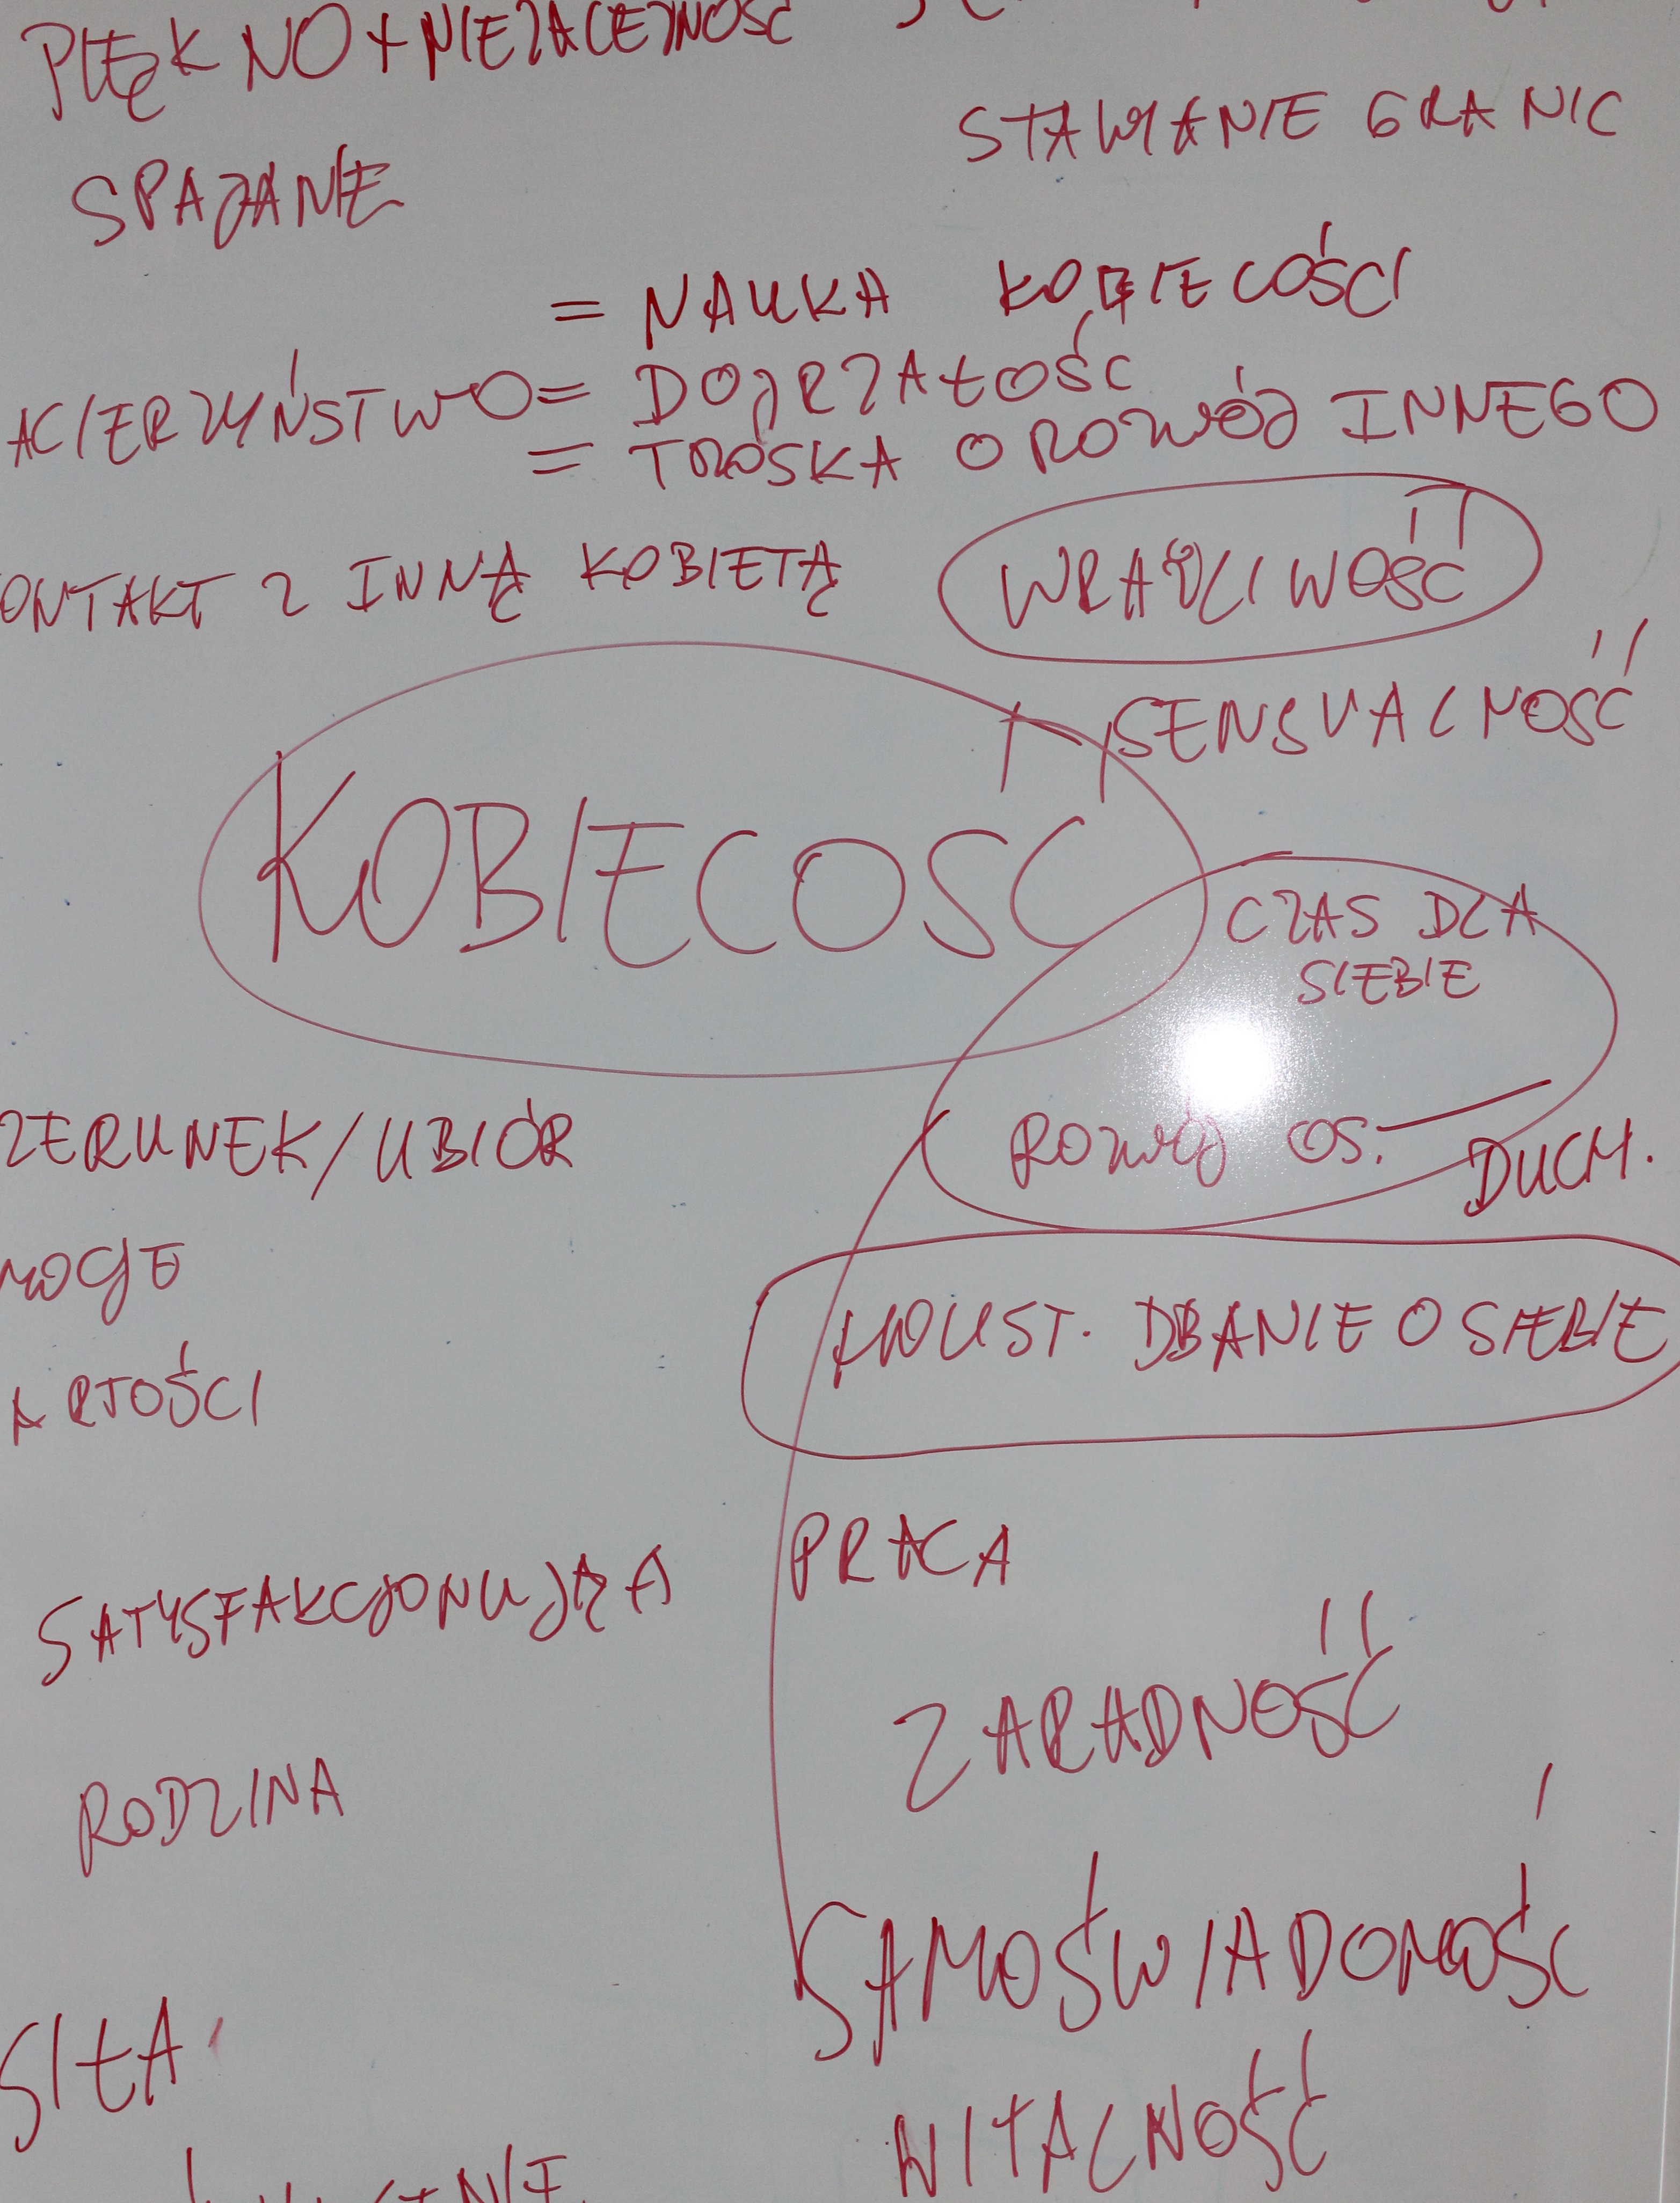 PIĘKNO + NIEZALEŻNOŚĆ
STAWIANIE GRANIC
SPAJANIE
= NAUKA KOBIECOŚCI
ACIERZYŃSTWO = DOJRZAŁOŚĆ
= TROSKA O ROZWÓJ INNEGO
ONTAKT Z INNĄ KOBIETĄ
WRAŻLIWOŚĆ
SENSUALNOŚĆ
KOBIECOŚĆ
CZAS DLA
SIEBIE
ZERUNEK/UBIÓR
ROZWÓJ OS.
DUCH.
HOLIST. DBANIE O SIEBIE
ARTOŚCI
PRACA
SATYSFAKCJONUJĄCA
ZARADNOŚĆ
RODZINA
SAMOŚWIADOMOŚĆ
SIŁA
WITALNOŚĆ